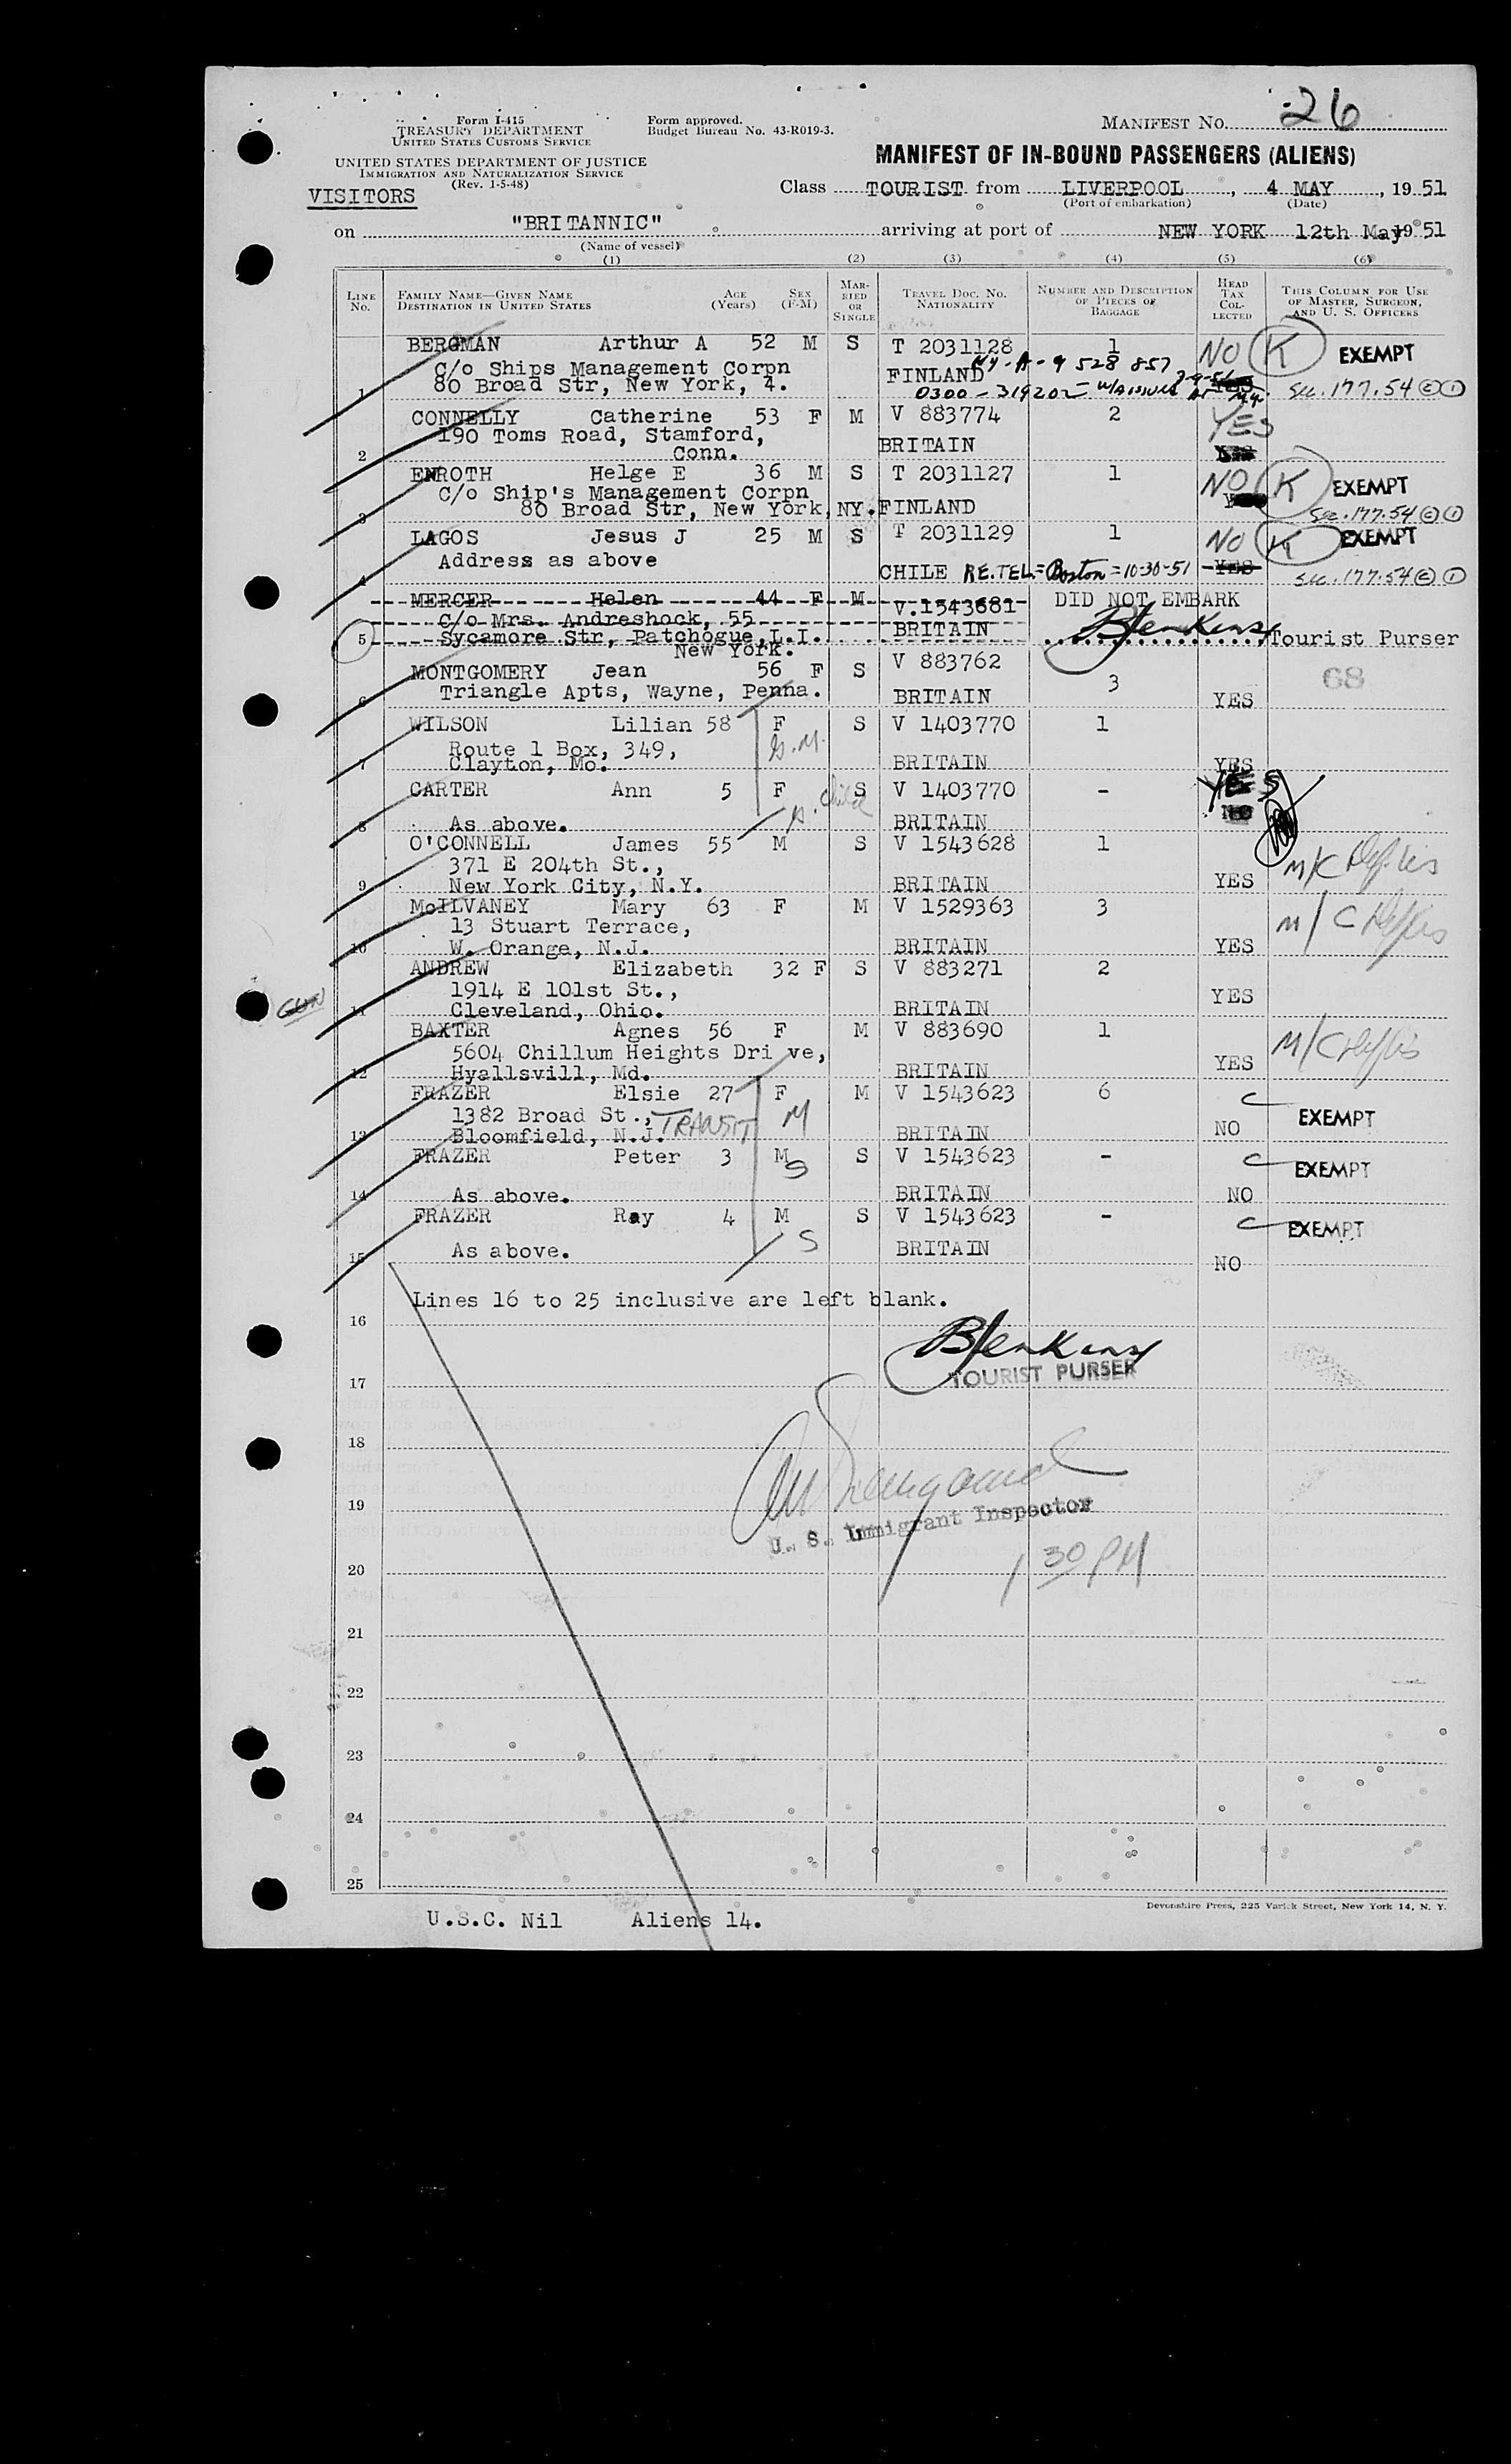 26
Form I-415
TREASURY DEPARTMENT
UNITED STATES CUSTOMS SERVICE
Form approved.
Budget Bureau No. 43-R019-3.
MANIFEST NO.
UNITED STATES DEPARTMENT OF JUSTICE
IMMIGRATION AND NATURALIZATION SERVICE
(Rev. 1-5-48)
MANIFEST OF IN-BOUND PASSENGERS (ALIENS)
VISITORS
Class TOURIST from LIVERPOOL, 4 MAY, 19 51
(Port of embarkation) (Date)
on "BRITANNIC" arriving at port of NEW YORK 12th May 19 51
(Name of vessel)
(1) (2) (3) (4) (5) (6)
LINE No. FAMILY NAME—GIVEN NAME DESTINATION IN UNITED STATES AGE (Years) SEX (F-M) MARRIED OR SINGLE TRAVEL DOC. NO. NATIONALITY NUMBER AND DESCRIPTION OF PIECES OF BAGGAGE HEAD TAX COLLECTED THIS COLUMN FOR USE OF MASTER, SURGEON, AND U. S. OFFICERS
BERGMAN Arthur A 52 M S T 2031128 1 NO K EXEMPT
C/o Ships Management Corpn FINLAND NY-A-9 528 857
1 80 Broad Str, New York, 4. 0300-319202- Sec. 177.54 C 1
CONNELLY Catherine 53 F M V 883774 2 YES
190 Toms Road, Stamford,
2 Conn. BRITAIN
ENROTH Helge E 36 M S T 2031127 1 NO K EXEMPT
C/o Ship's Management Corpn
3 80 Broad Str, New York, NY. FINLAND Sec. 177.54 C 1
LAGOS Jesus J 25 M S T 2031129 1 NO K EXEMPT
Address as above
4 CHILE RE.TEL.=Boston=10-30-51 YES Sec. 177.54 C 1
MERCER Helen 44 F M V.1543681 DID NOT EMBARK
C/o Mrs. Andreshock, 55
5 Sycamore Str, Patchogue, L.I. BRITAIN BJenkins, Tourist Purser
New York.
MONTGOMERY Jean 56 F S V 883762 3 68
6 Triangle Apts, Wayne, Penna. BRITAIN YES
WILSON Lilian 58 F S V 1403770 1
Route 1 Box, 349, G.M.
7 Clayton, Mo. BRITAIN YES
CARTER Ann 5 F S V 1403770 - YES
G. Child
8 As above. BRITAIN NO
O'CONNELL James 55 M S V 1543628 1
371 E 204th St.,
9 New York City, N.Y. BRITAIN YES M/C
McILVANEY Mary 63 F M V 1529363 3
13 Stuart Terrace,
10 W. Orange, N.J. BRITAIN YES M/C
ANDREW Elizabeth 32 F S V 883271 2
1914 E 101st St.,
11 Cleveland, Ohio. BRITAIN YES
BAXTER Agnes 56 F M V 883690 1
5604 Chillum Heights Dri ve,
12 Hyallsvill, Md. BRITAIN YES M/C
FRAZER Elsie 27 F M V 1543623 6 C EXEMPT
1382 Broad St., TRANSIT M
13 Bloomfield, N.J. BRITAIN NO
FRAZER Peter 3 M S V 1543623 - C EXEMPT
S
14 As above. BRITAIN NO
FRAZER Ray 4 M S V 1543623 - C EXEMPT
S
15 As above. BRITAIN NO
Lines 16 to 25 inclusive are left blank.
16
BJenkins
TOURIST PURSER
17
18
19
U. S. Immigrant Inspector
1 30 PM
20
21
22
23
24
25
Devonshire Press, 225 Varick Street, New York 14, N. Y.
U.S.C. Nil Aliens 14.